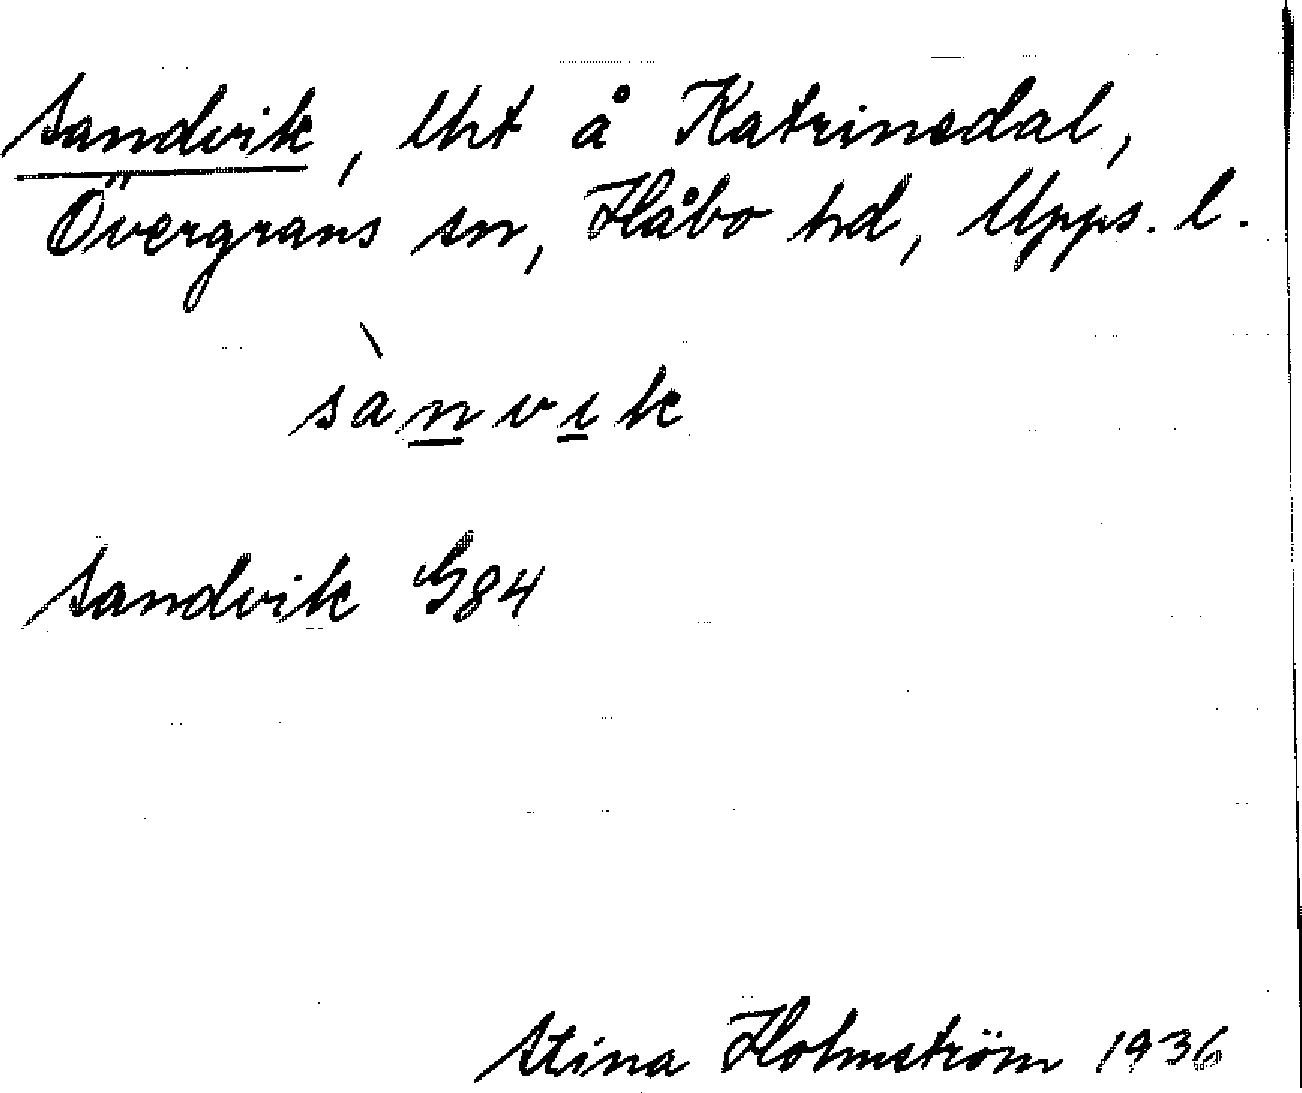 Sandvik, lht å Katrinedal,
Övergrans sn, Håbo hd, Upps. l.
sànvik
Sandvik G84
Stina Holmström 1936